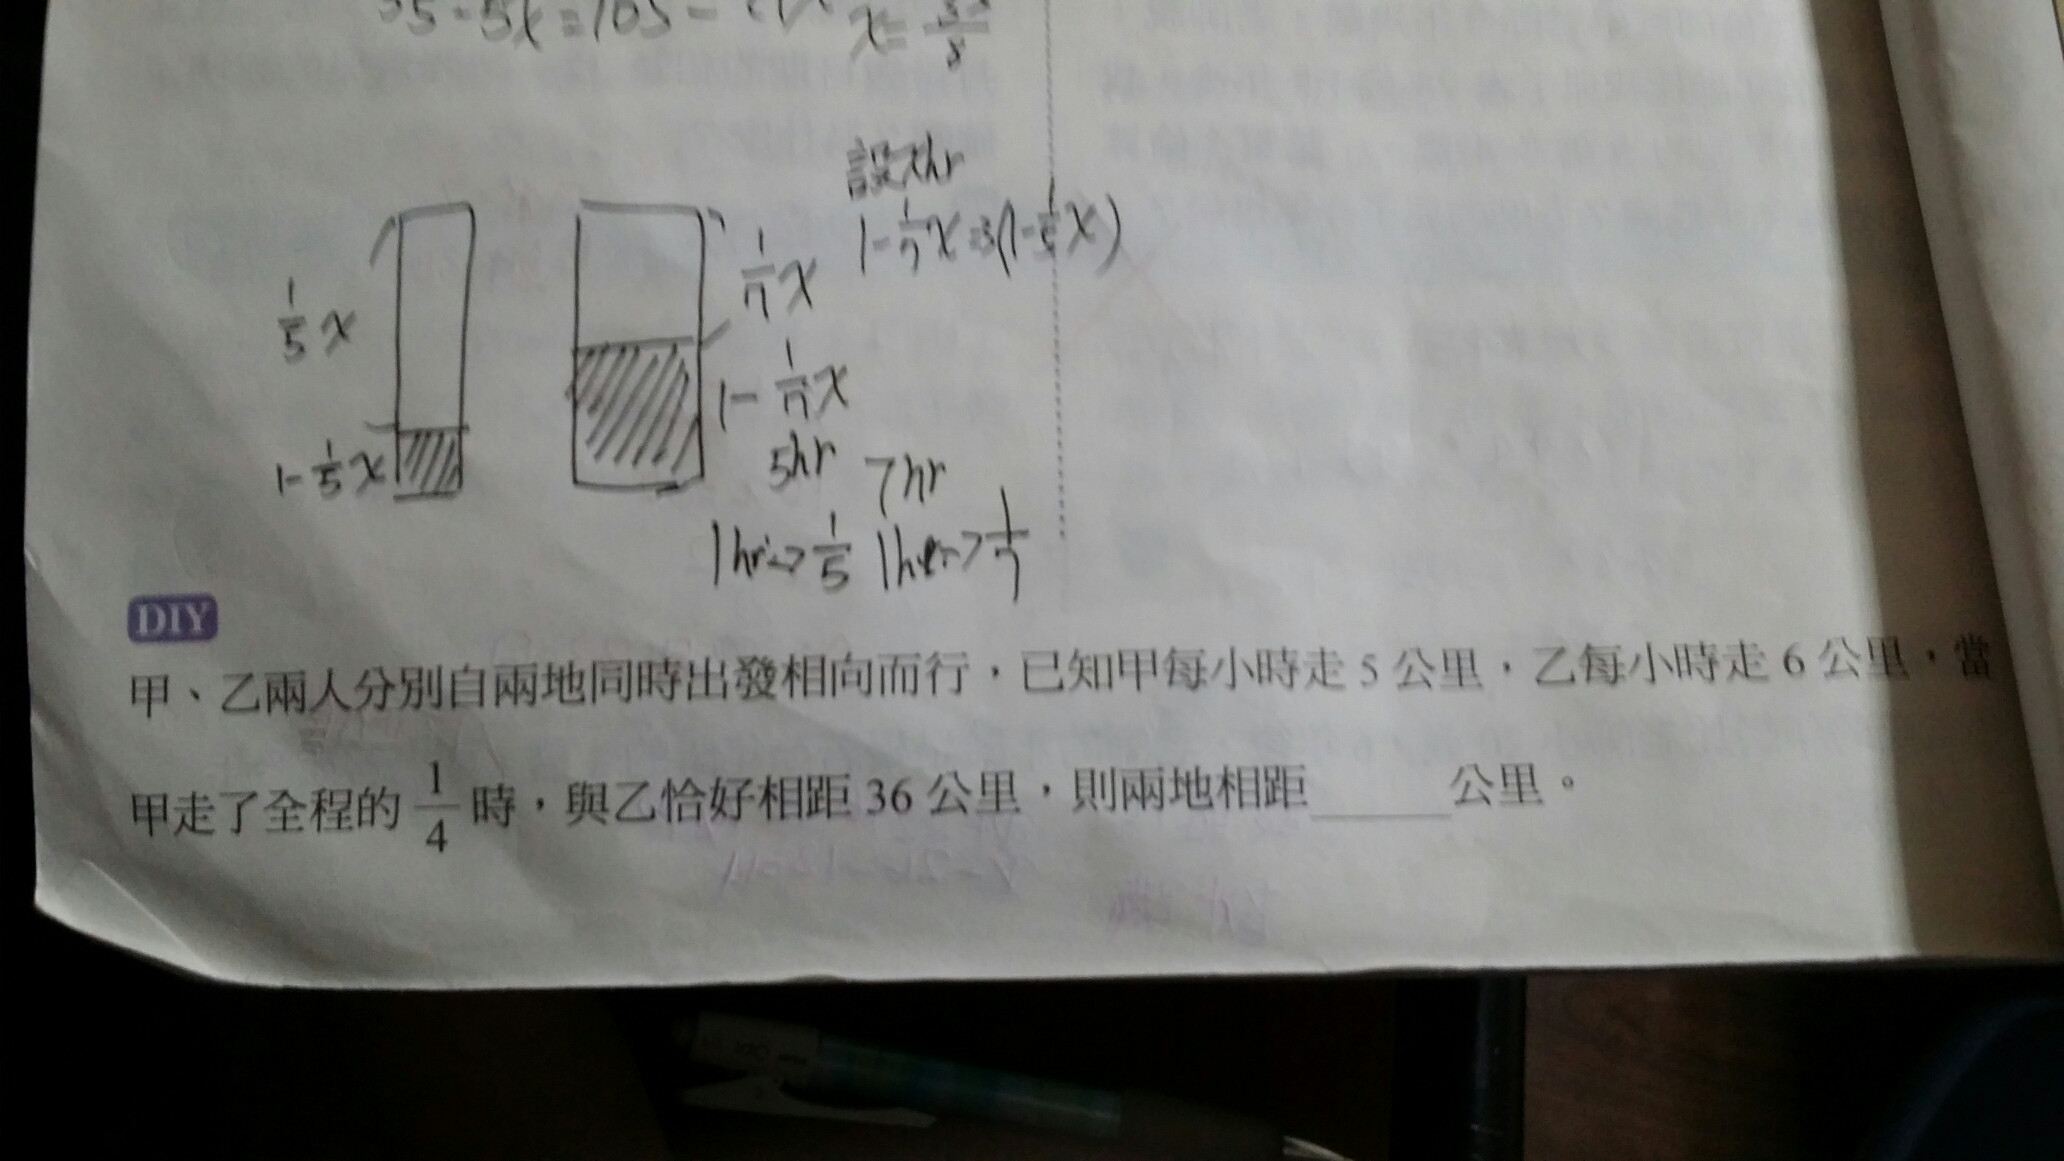 35-5x=105-
x=
設xhr
1-1/7x=3(1-1/5x)
1/5x
1/7x
1-1/7x
1-1/5x
5hr 7hr
1hr->1/5 1hr->1/7
DIY
甲、乙兩人分別自兩地同時出發相向而行，已知甲每小時走 5 公里，乙每小時走 6 公里，當
甲走了全程的 1/4 時，與乙恰好相距 36 公里，則兩地相距______公里。